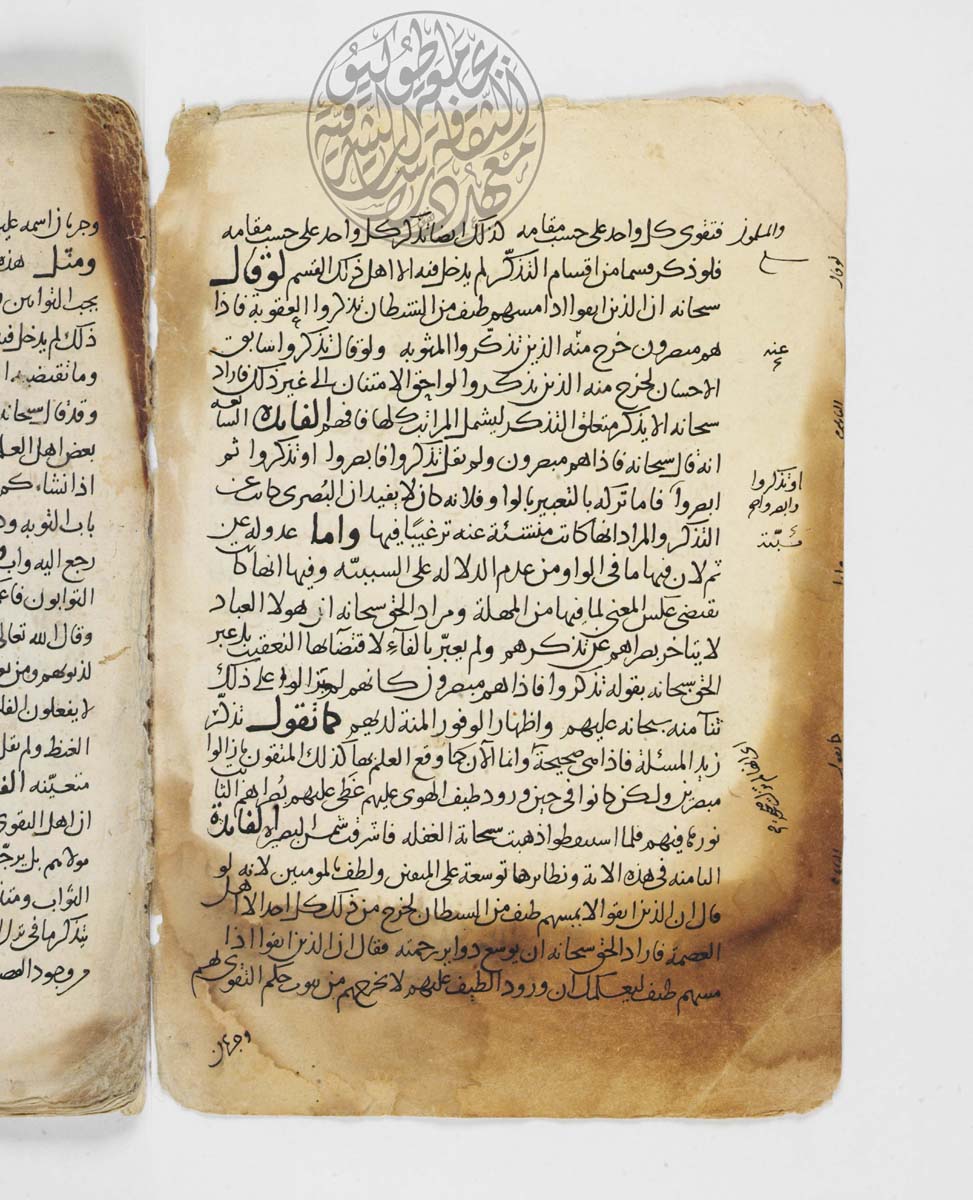 فتقوى كل واحد على حسب مقامه كذلك ايضا تذكر كل واحد على حسب مقامه
فلو ذكر قسما من اقسام التذكر لم يدخل فيه الا اهل ذلك القسم لو قال
سبحانه ان الذين اتقوا اذا مسهم طيف من الشيطان تذكروا العقوبة فاذا
هم مبصرون خرج منه الذين تذكروا المثوبه ولو قال تذكروا سابق
الاحسان لخرج منه الذين تذكروا لواحق الامتنان الى غير ذلك فاراد
سبحانه الا يذكر متعلق التذكر ليشمل المراتب كلها فافهم الفايدة السابعه
انه قال سبحانه فاذا هم مبصرون ولم يقل تذكروا فابصروا او تذكروا ثم
ابصروا فاما تركه بالتعبير بالواو فلانه كان لا يفيد ان البُصرى كانت عن
التذكر والمراد انها كانت منشئة عنه ترغيبًا فيها واما عدوله عن
ثم لان فيها ما في الواو من عدم الدلاله على السببيّه وفيها انها كانت
تقتضي عكس المعنى لما فيها من المهلة ومراد الحق سبحانه ان هولا العباد
لا يتاخر بصراهم عن تذكرهم ولم يعبّر بالفآء لاقتضآيها التعقيب بل عبر
الحق سبحانه بقوله تذكروا فاذا هم مبصرون كانهم لم يزالوا على ذلك
ثنآ منه سبحانه عليهم واظهار الوفور المنة لديهم كما تقول تذكّر
زيد المسئلة فاذا هي صحيحة وانما الآن كما وقع العلم بها كذلك المتقون ما زالوا
مبصرين ولكن كانوا في حين ورود طيف الهوى عليهم غطّى عليهم بُصراهم الثابت
نورها فيهم فلما استيقظوا ذهبت سحابة الغفلة فاشرقت شمس البصيرة الفايدة
الثامنه في هذه الاية ونظايرها توسعة على المتقين ولطف بالمومنين لانه لو
قال ان الذين اتقوا لا يمسهم طيف من الشيطان لخرج من ذلك كل احد الا اهل
العصمة فاراد الحق سبحانه ان يوسع دواير رحمته فقال ان الذين اتقوا اذا
مسهم طيف ليعلمك ان ورود الطيف عليهم لا يخرجهم من ثبوت حكم التقوى لهم
وجريان
عنه
او تذكروا
وابصروا
وجريان اسمه عليهم
ومثل هذه
يحب التوابين
ذلك لم يدخل فيه
وما تقتضيه
وقد قال سبحانه
بعض اهل العلم
اذا نشاءكم
باب التوبه
رجع اليه
التوابون
وقال الله تعالى
لذنوبهم ومن
لا يفعلون
الغيظ ولم يقل
متعيّنه
ان اهل التقوى
مولاهم بل
الثواب